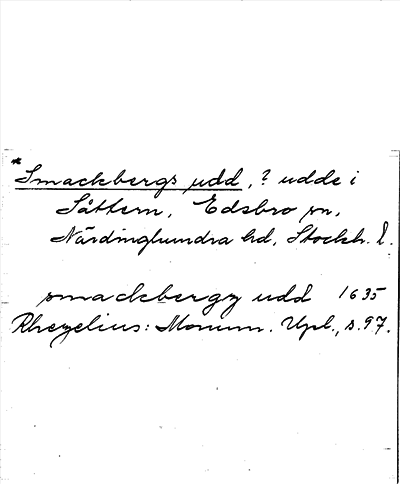 *Smackbergs udd, ? udde i
Såttern, Edsbro sn,
Närdinghundra hd, Stockh. l.
smackbergz udd 1635
Rhezelius: Monum. Upl., s. 97.